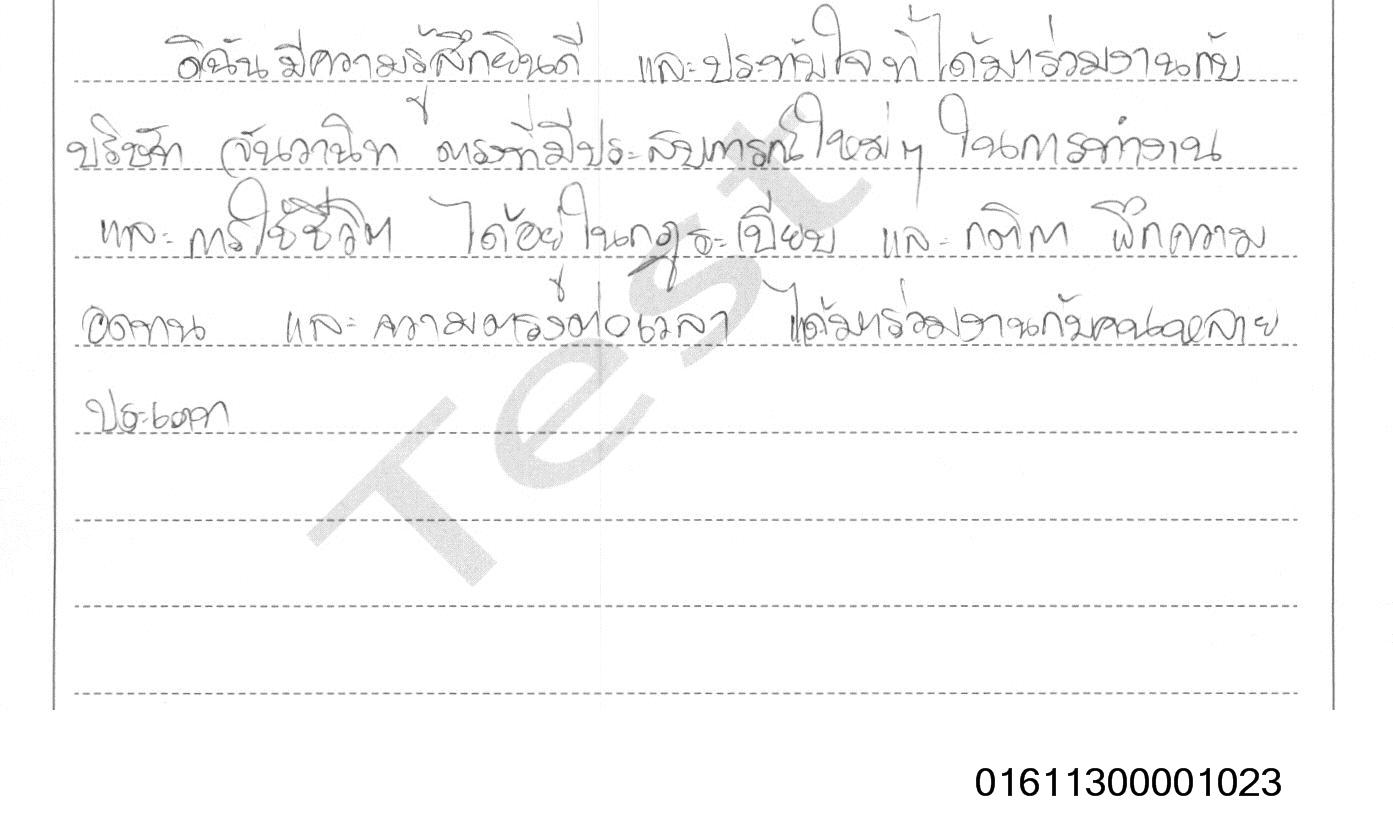 ดิฉันมีความรู้สึกยินดี และประทับใจที่ได้มาร่วมงานกับ
บริษัท จันวานิช ตรงที่มีประสบการณ์ใหม่ๆ ในการทำงาน
และการใช้ชีวิต ได้อยู่ในกฎระเบียบ และกติกา ฝึกความ
อดทน และความตรงต่อเวลา ได้มาร่วมงานกับคนหลาย
ประเภท
Test
01611300001023